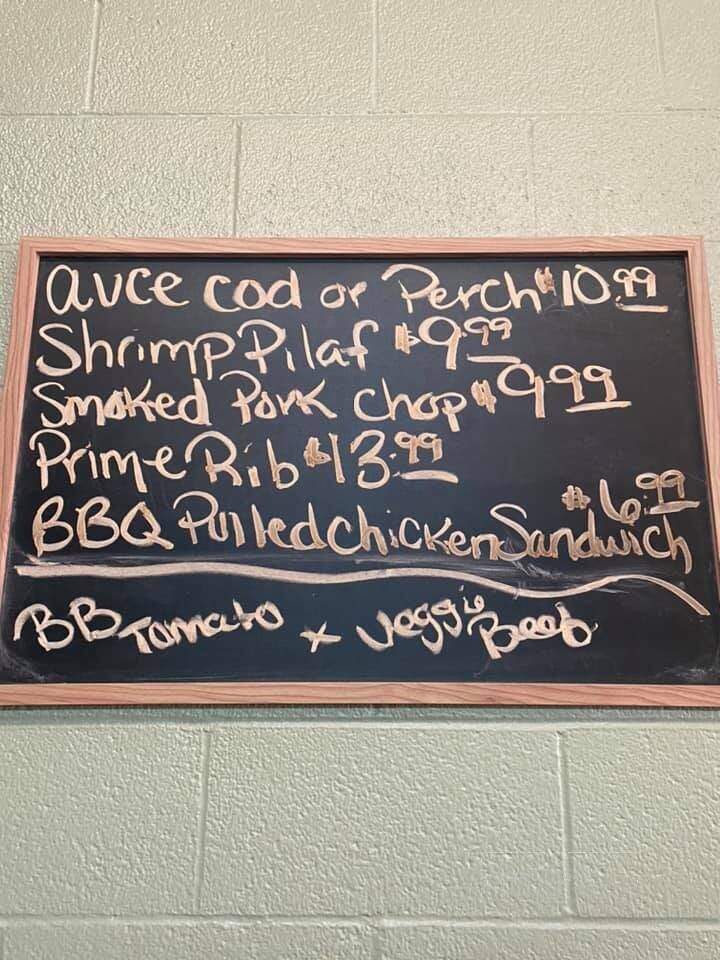 auce cod or Perch $10.99
Shrimp Pilaf $9.99
Smoked Pork chop $9.99
Prime Rib $13.99
BBQ Pulled Chicken Sandwich $6.99
BB Tomato + Veggie Beef